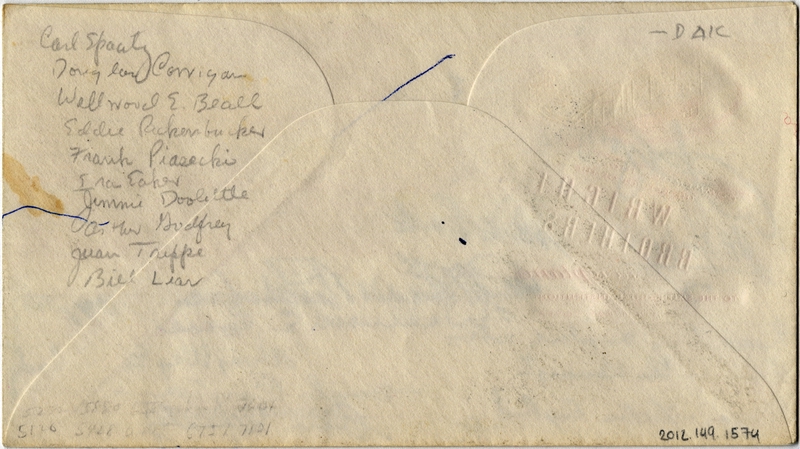 Carl Spaatz
Douglas Corrigan
Wellwood E. Beall
Eddie Rickenbacker
Frank Piasecki
Ira Eaker
Jimmie Doolittle
Arthur Godfrey
Juan Trippe
Bill Lear
—DAK
WRIGHT
BROTHERS
2012.149.1574